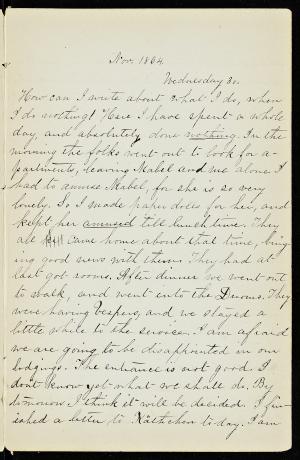 Nov. 1864
Wednesday 30.
How can I write about what I do, when
I do nothing! Here I have spent a whole
day, and absolutely done nothing. In the
morning the folks went out to look for a-
partments, leaving Mabel and me alone. I
had to amuse Mabel, for she is so very
lonely. So I made paper dolls for her, and
kept her amused till lunch time. They
all came home about that time, bring-
ing good news with them. They had at
last got rooms. After dinner we went out
to walk, and went into the Duomo. They
were having Vespers, and we stayed a
little while to the service. I am afraid
we are going to be disappointed in our
lodgings. The entrance is not good. I
don't know yet what we shall do. By
tomorrow I think it will be decided. I fin-
ished a letter to Käthchen today. I am